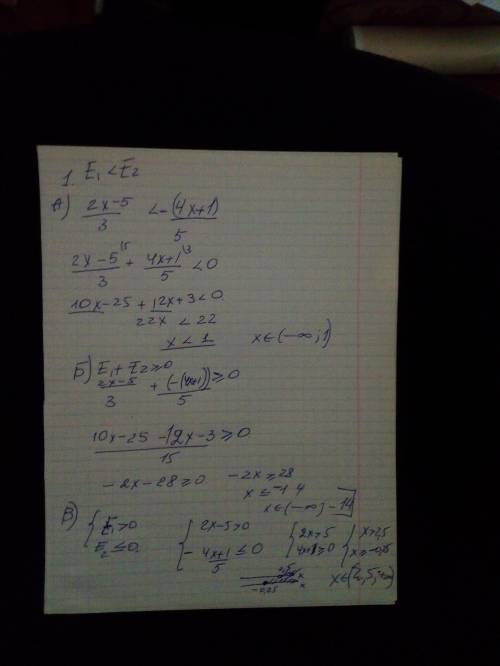 1. E₁ < E₂
А) (2x-5)/3 < -(4x+1)/5
(2x-5)/3 + (4x+1)/5 < 0
10x-25 + 12x+3 < 0
22x < 22
x < 1 x∈(-∞;1)
Б) E₁+E₂ ≥ 0
(2x-5)/3 + (-(4x+1))/5 ≥ 0
(10x-25-12x-3)/15 ≥ 0
-2x-28 ≥ 0 -2x ≥ 28
x ≤ -14
x∈(-∞;-14]
В) { E₁>0 { 2x-5>0 { 2x>5 { x>2,5
E₂≤0 -(4x+1)/5 ≤ 0 4x+1≥0
-0,25 x∈(2,5;+∞)